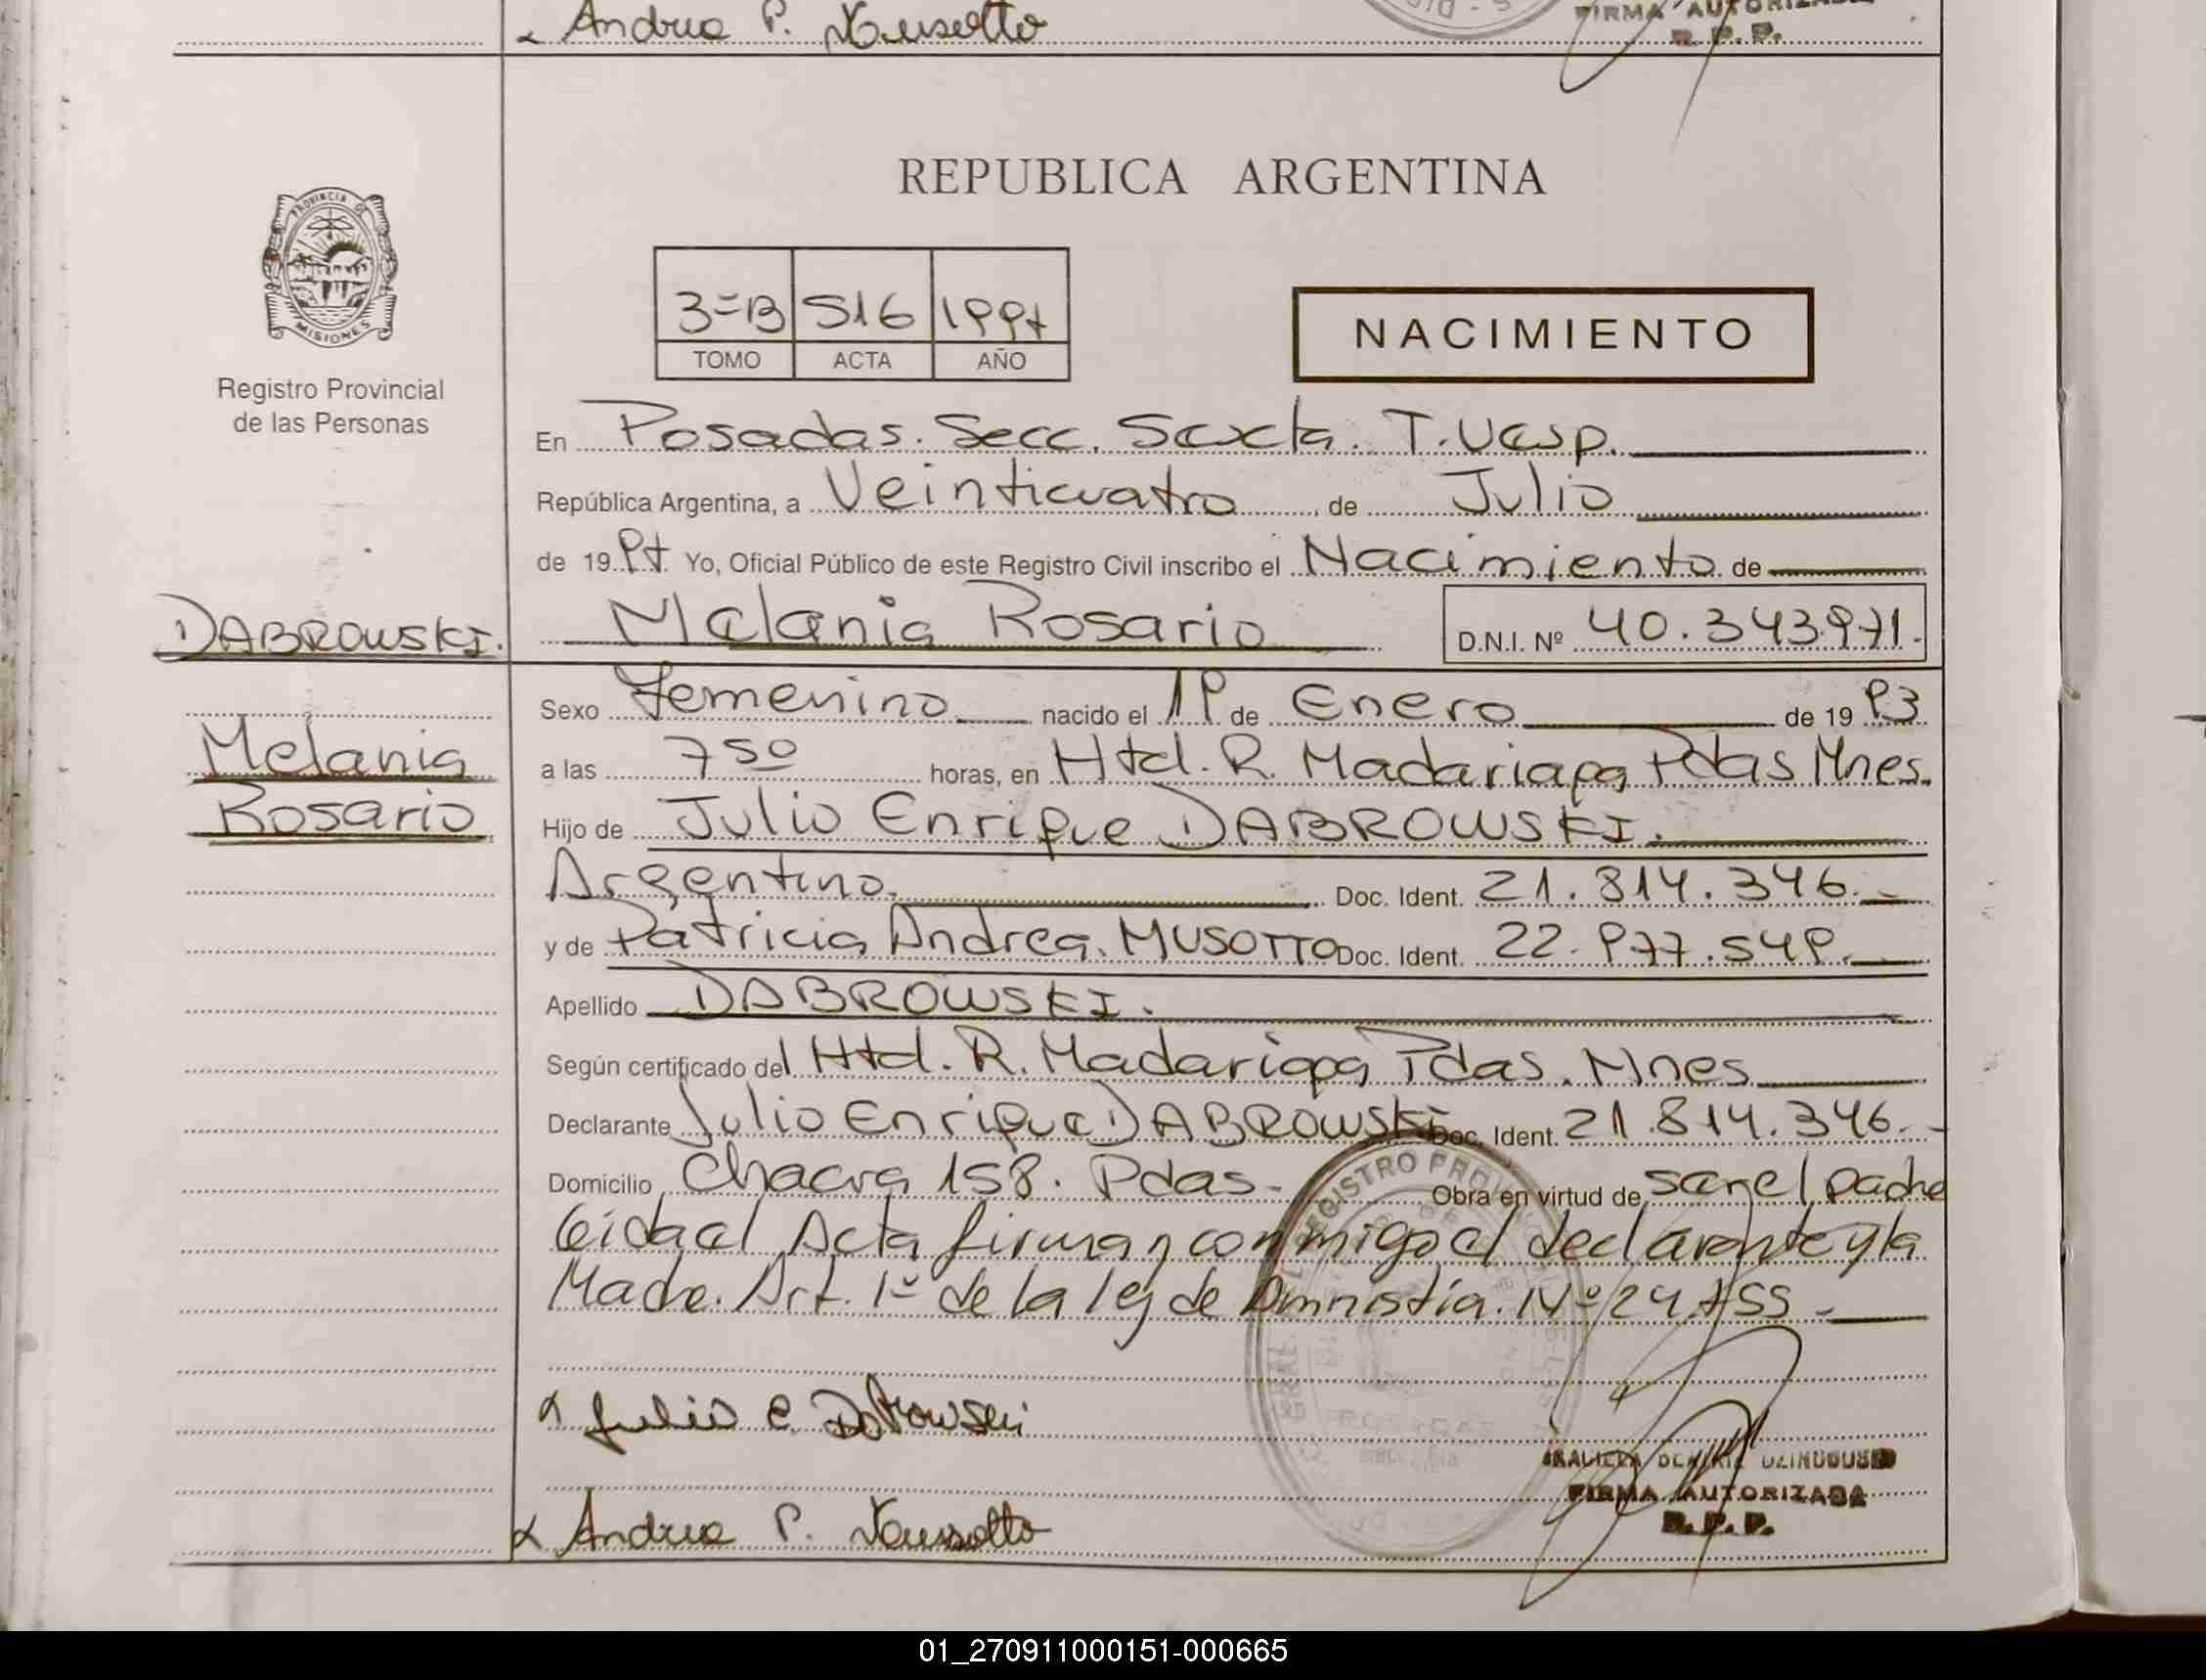 Andrea P. Mussotto
FIRMA AUTORIZADA
R. P. P.
REPUBLICA ARGENTINA
PROVINCIA DE
MISIONES
Registro Provincial
de las Personas
3=B 516 1997
TOMO ACTA AÑO
NACIMIENTO
En Posadas. Secc. Sexta. T. Vesp.
República Argentina, a Veinticuatro, de Julio
de 1997 Yo, Oficial Público de este Registro Civil inscribo el Nacimiento de
DABROWSKI. Melania Rosario D.N.I. Nº 40.343.971.
Sexo Femenino nacido el 19 de Enero de 1993
Melania
a las 7 50 horas, en Htal. R. Madariaga Pdas Mnes.
Rosario
Hijo de Julio Enrique DABROWSKI.
Argentino. Doc. Ident. 21.814.346.
y de Patricia Andrea. MUSOTTO Doc. Ident. 22.977.549.
Apellido DABROWSKI.
Según certificado del Htal. R. Madariaga Pdas. Mnes
Declarante Julio Enrique DABROWSKI Doc. Ident. 21.814.346.
Domicilio Chacra 158. Pdas. Obra en virtud de ser el padre
Leida el Acta firman conmigo el declarante y la
Madre. Art. 1º de la ley de Amnistía. Nº 24.755
Julio E. Dabrowski
FIRMA AUTORIZADA
R. P. P.
Andrea P. Mussotto
01_270911000151-000665